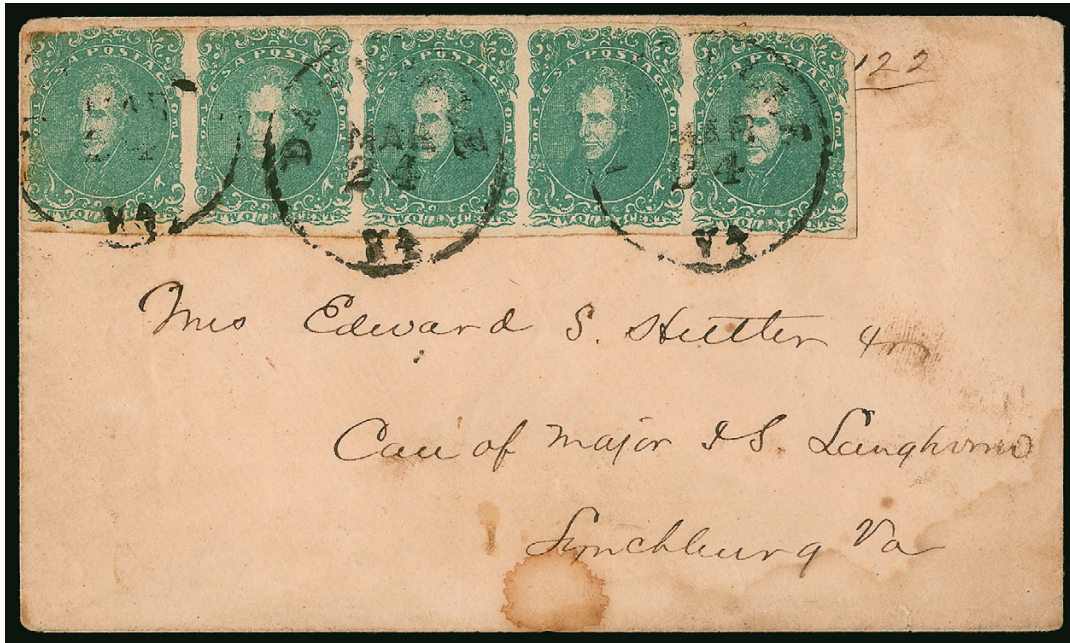 C.S.A POSTAGE TWO CENTS
C.S.A POSTAGE TWO CENTS
C.S.A POSTAGE TWO CENTS
C.S.A POSTAGE TWO CENTS
C.S.A POSTAGE TWO CENTS
122
MAR
VA
MAR
24
VA
MAR
24
VA
Mrs Edward S. Hutter
Care of Major J S. Langhorne
Lynchburg Va